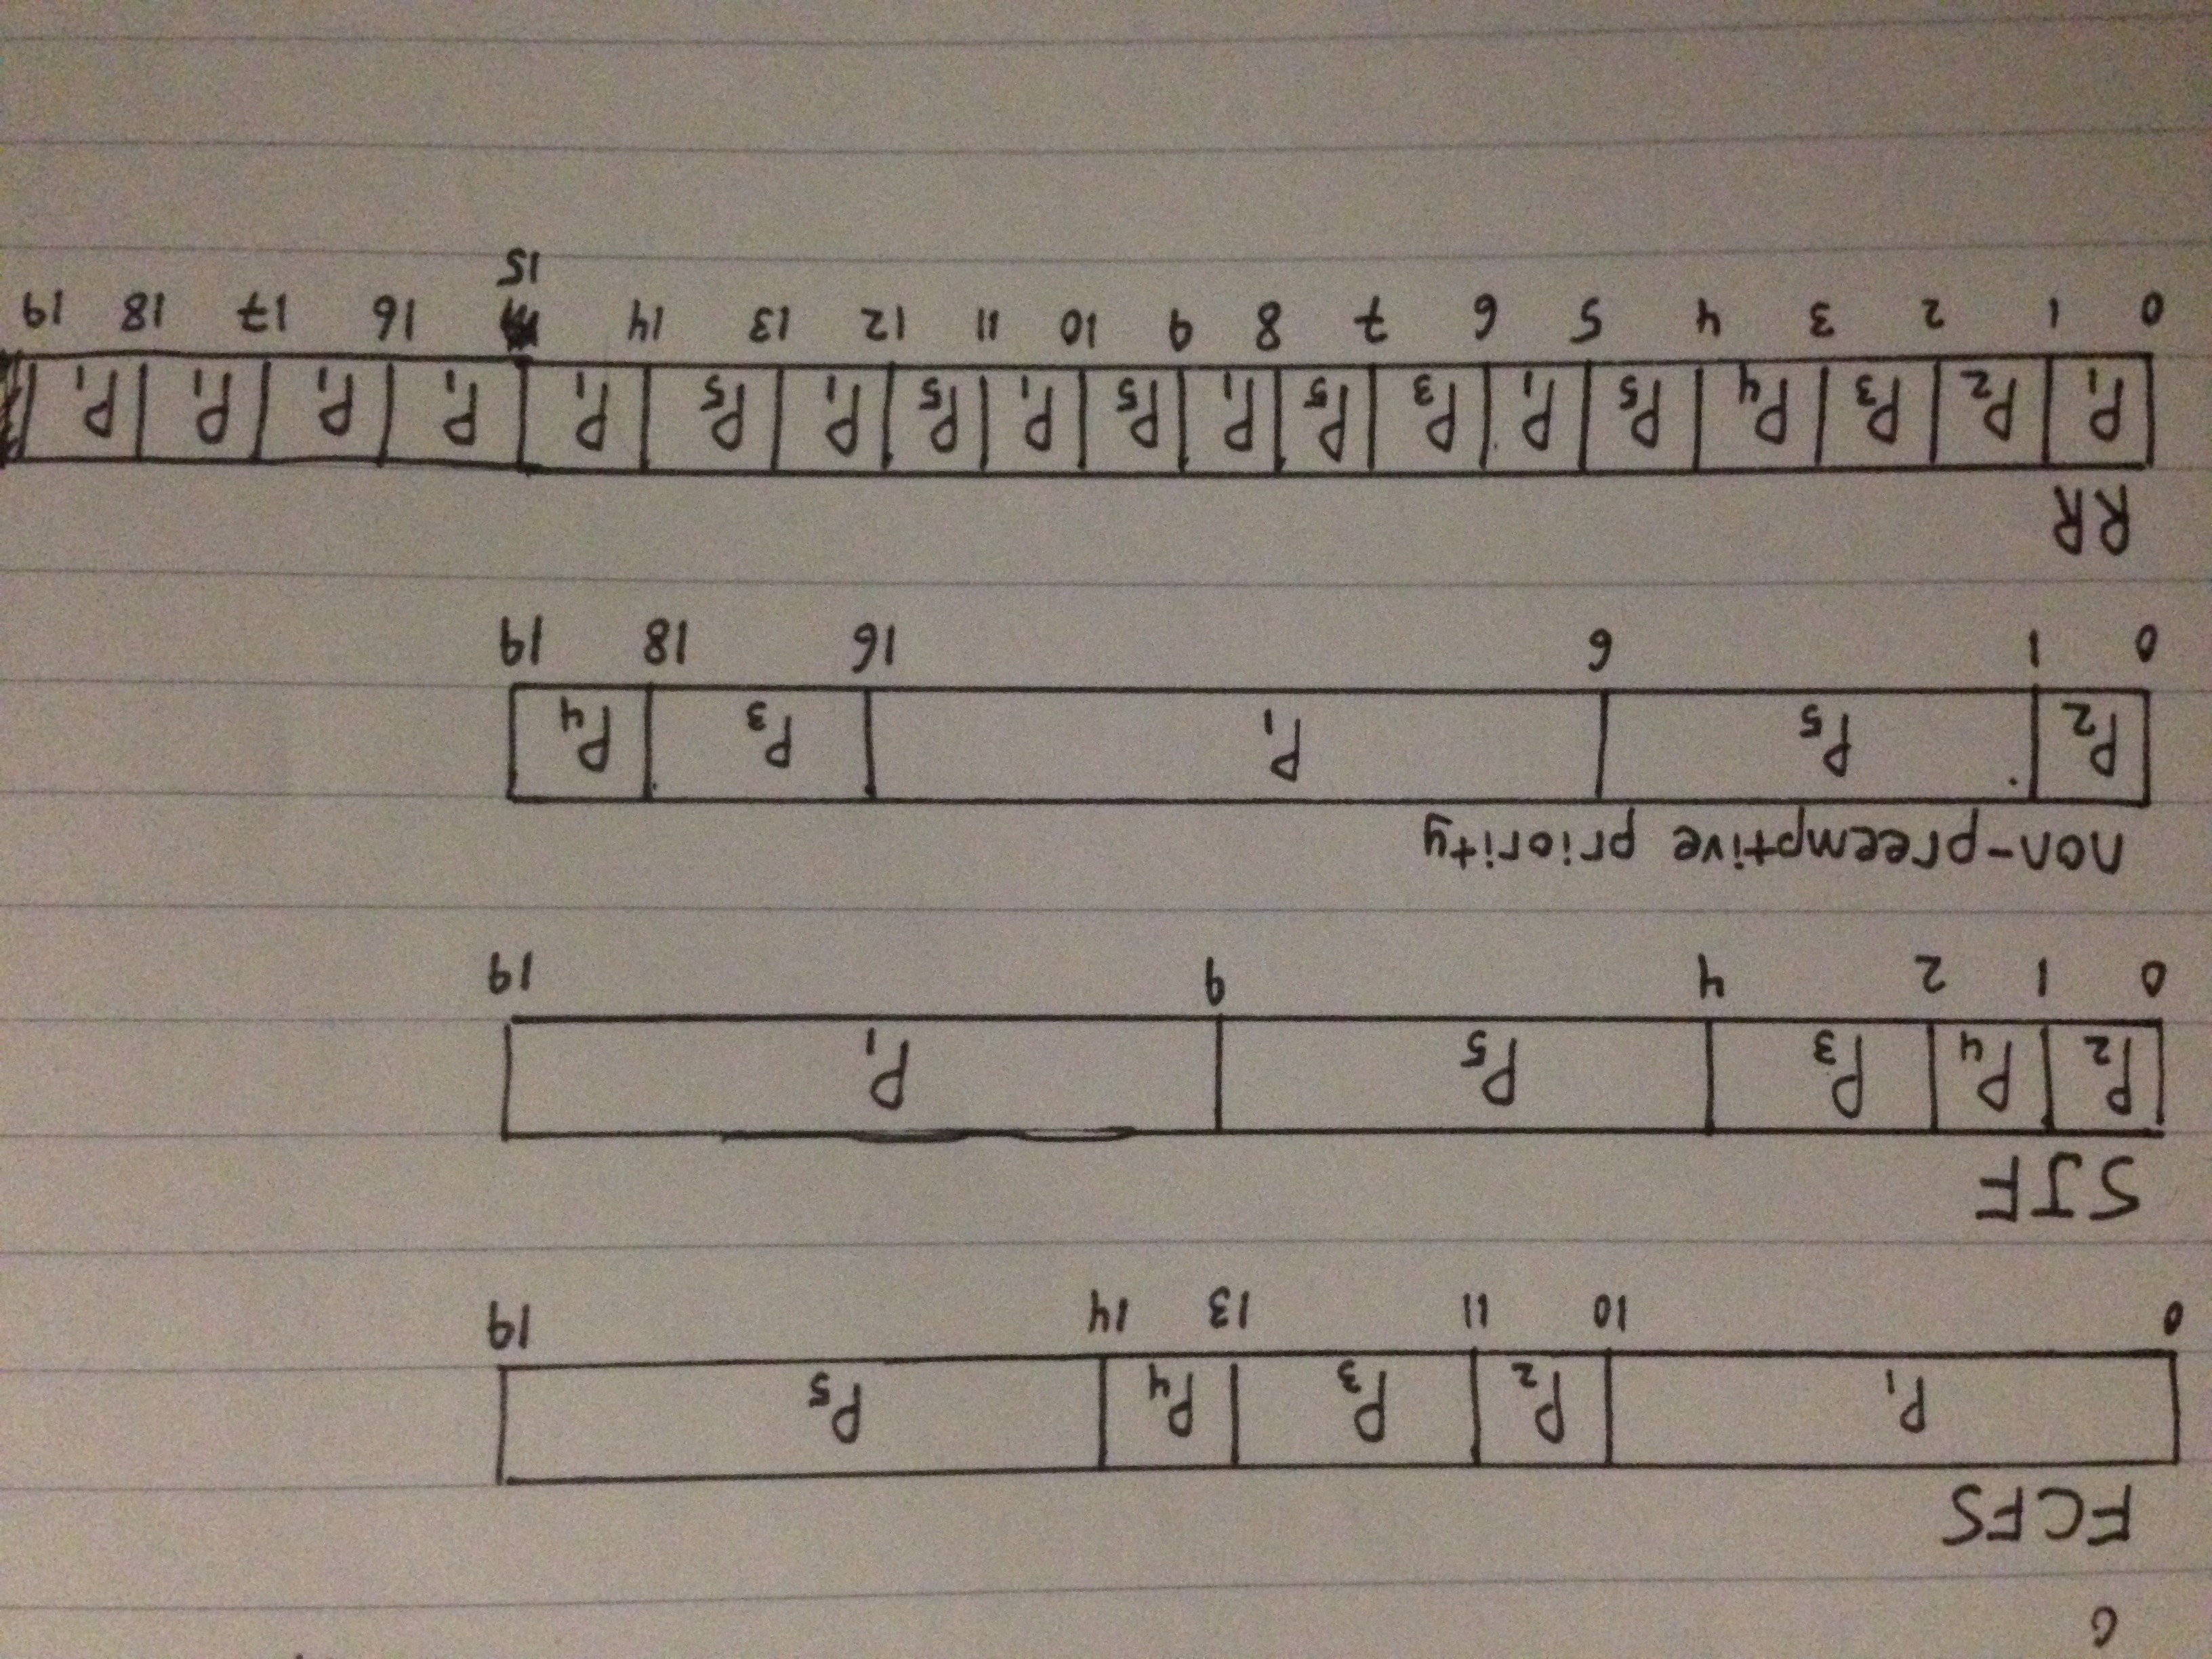 6
FCFS
P1 P2 P3 P4 P5
0 10 11 13 14 19
SJF
P2 P4 P3 P5 P1
0 1 2 4 9 19
non-preemptive priority
P2 P5 P1 P3 P4
0 1 6 16 18 19
RR
P1 P2 P3 P4 P5 P1 P3 P5 P1 P5 P1 P5 P1 P5 P1 P1 P1 P1 P1
0 1 2 3 4 5 6 7 8 9 10 11 12 13 14 16 17 18 19
15